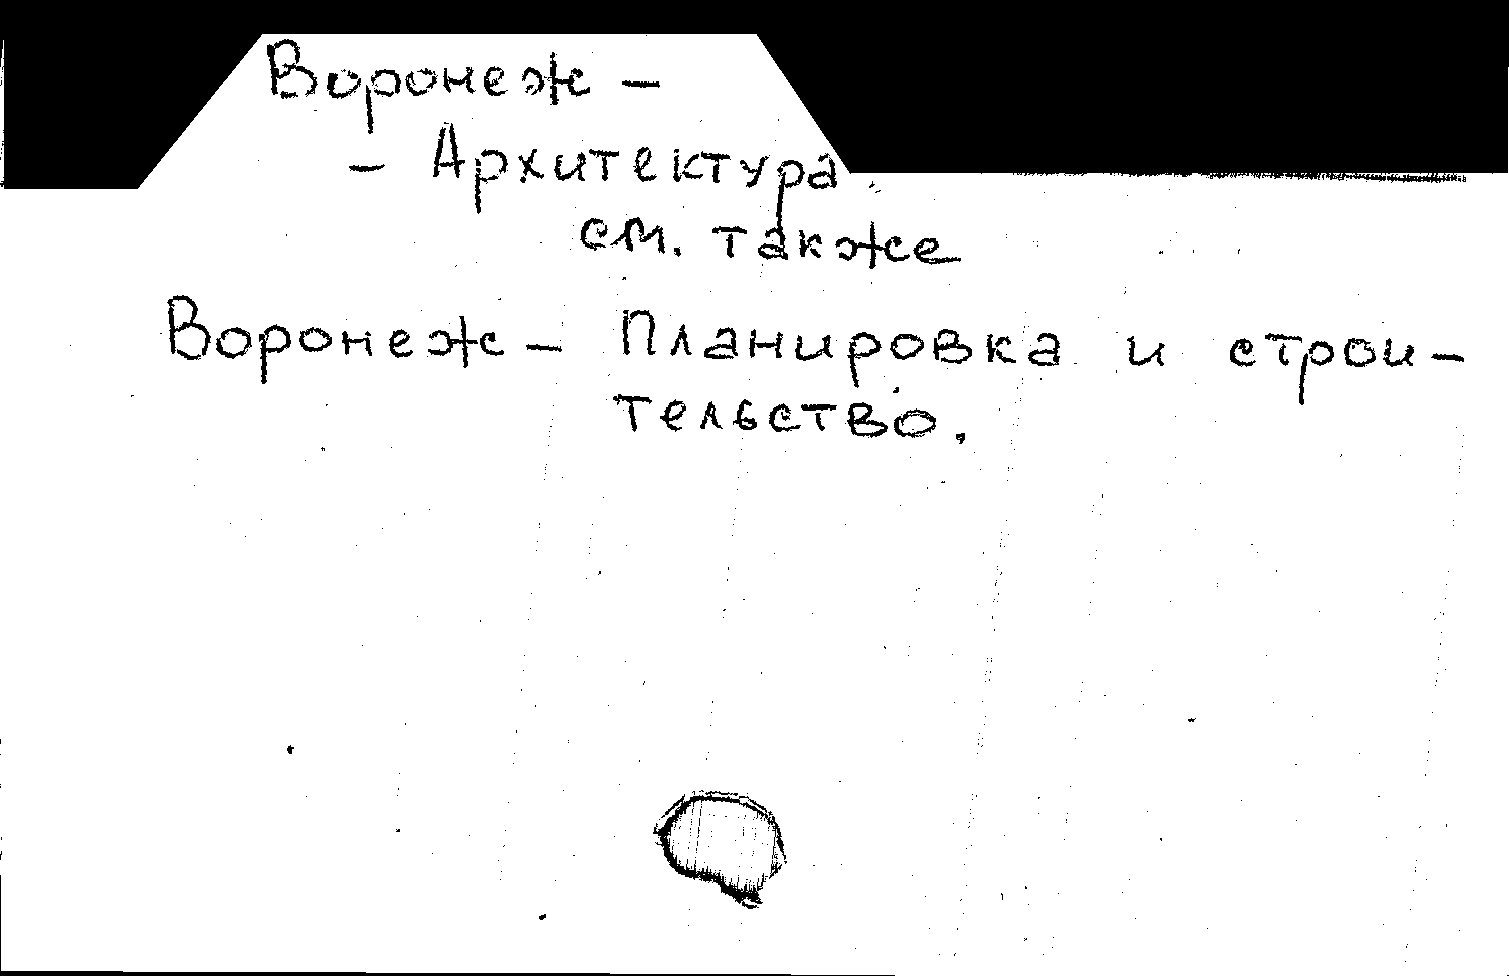 Воронеж –
– Архитектура.
см. также
Воронеж – Планировка и строи-
тельство.